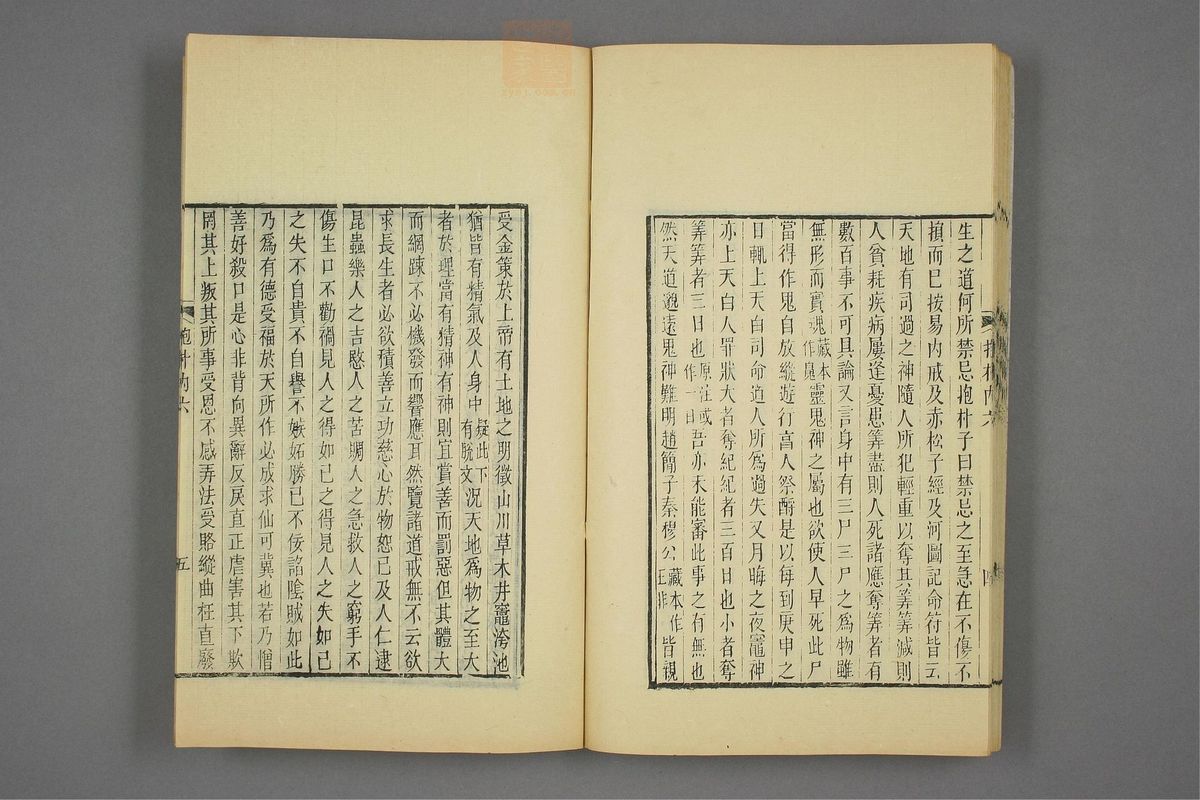 生之道何所禁忌抱朴子曰禁忌之至急在不傷不
損而已按易內戒及赤松子經及河圖記命符皆云
天地有司過之神隨人所犯輕重以奪其筭筭減則
人貧耗疾病屢逢憂患筭盡則人死諸應奪筭者有
數百事不可具論又言身中有三尸三尸之爲物雖
無形而實魂藏本作鬼靈鬼神之屬也欲使人早死此尸
當得作鬼自放縱遊行亯人祭酹是以每到庚申之
日輒上天白司命道人所爲過失又月晦之夜竈神
亦上天白人罪狀大者奪紀紀者三百日也小者奪
筭筭者三日也原注或作一日吾亦未能審此事之有無也
然天道邈遠鬼神難明趙簡子秦穆公藏本作王非皆親
四
受金策於上帝有土地之明徵山川草木井竈洿池
猶皆有精氣及人身中疑此下有脫文況天地爲物之至大
者於理當有精神有神則宜賞善而罰惡但其體大
而網踈不必機發而響應耳然覽諸道戒無不云欲
求長生者必欲積善立功慈心於物恕己及人仁逮
昆蟲樂人之吉愍人之苦賙人之急救人之窮手不
傷生口不勸禍見人之得如己之得見人之失如己
之失不自貴不自譽不嫉妬勝己不佞諂陰賊如此
乃爲有德受福於天所作必成求仙可冀也若乃憎
善好殺口是心非背向異辭反戾直正虐害其下欺
罔其上叛其所事受恩不感弄法受賂縱曲枉直廢
抱朴內六
五